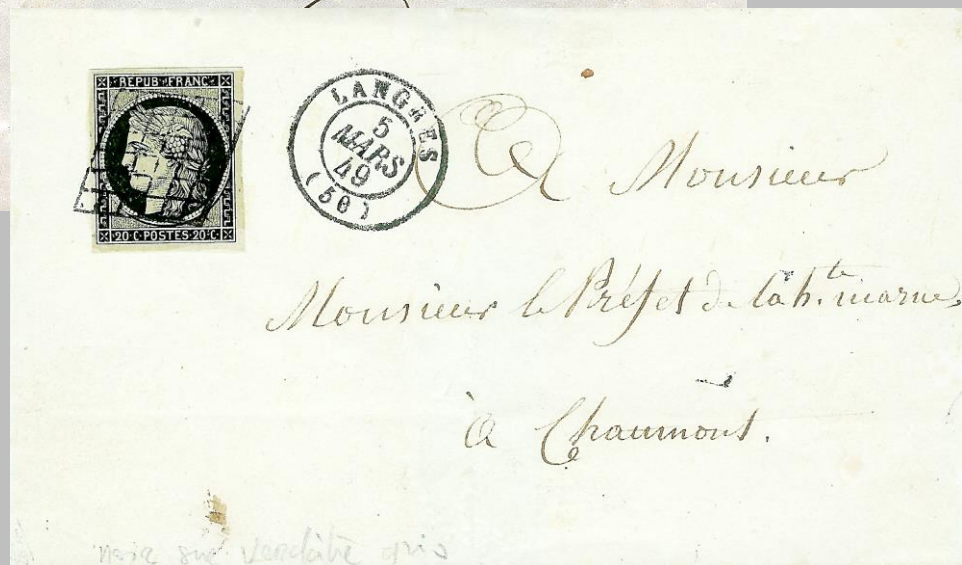 REPUB·FRANC·
20·C·POSTES·20·C·
LANGRES
5
MARS
49
(50)
A Monsieur
Monsieur le Préfet de la h.te marne,
à Chaumont.
noir sur verdâtre gris